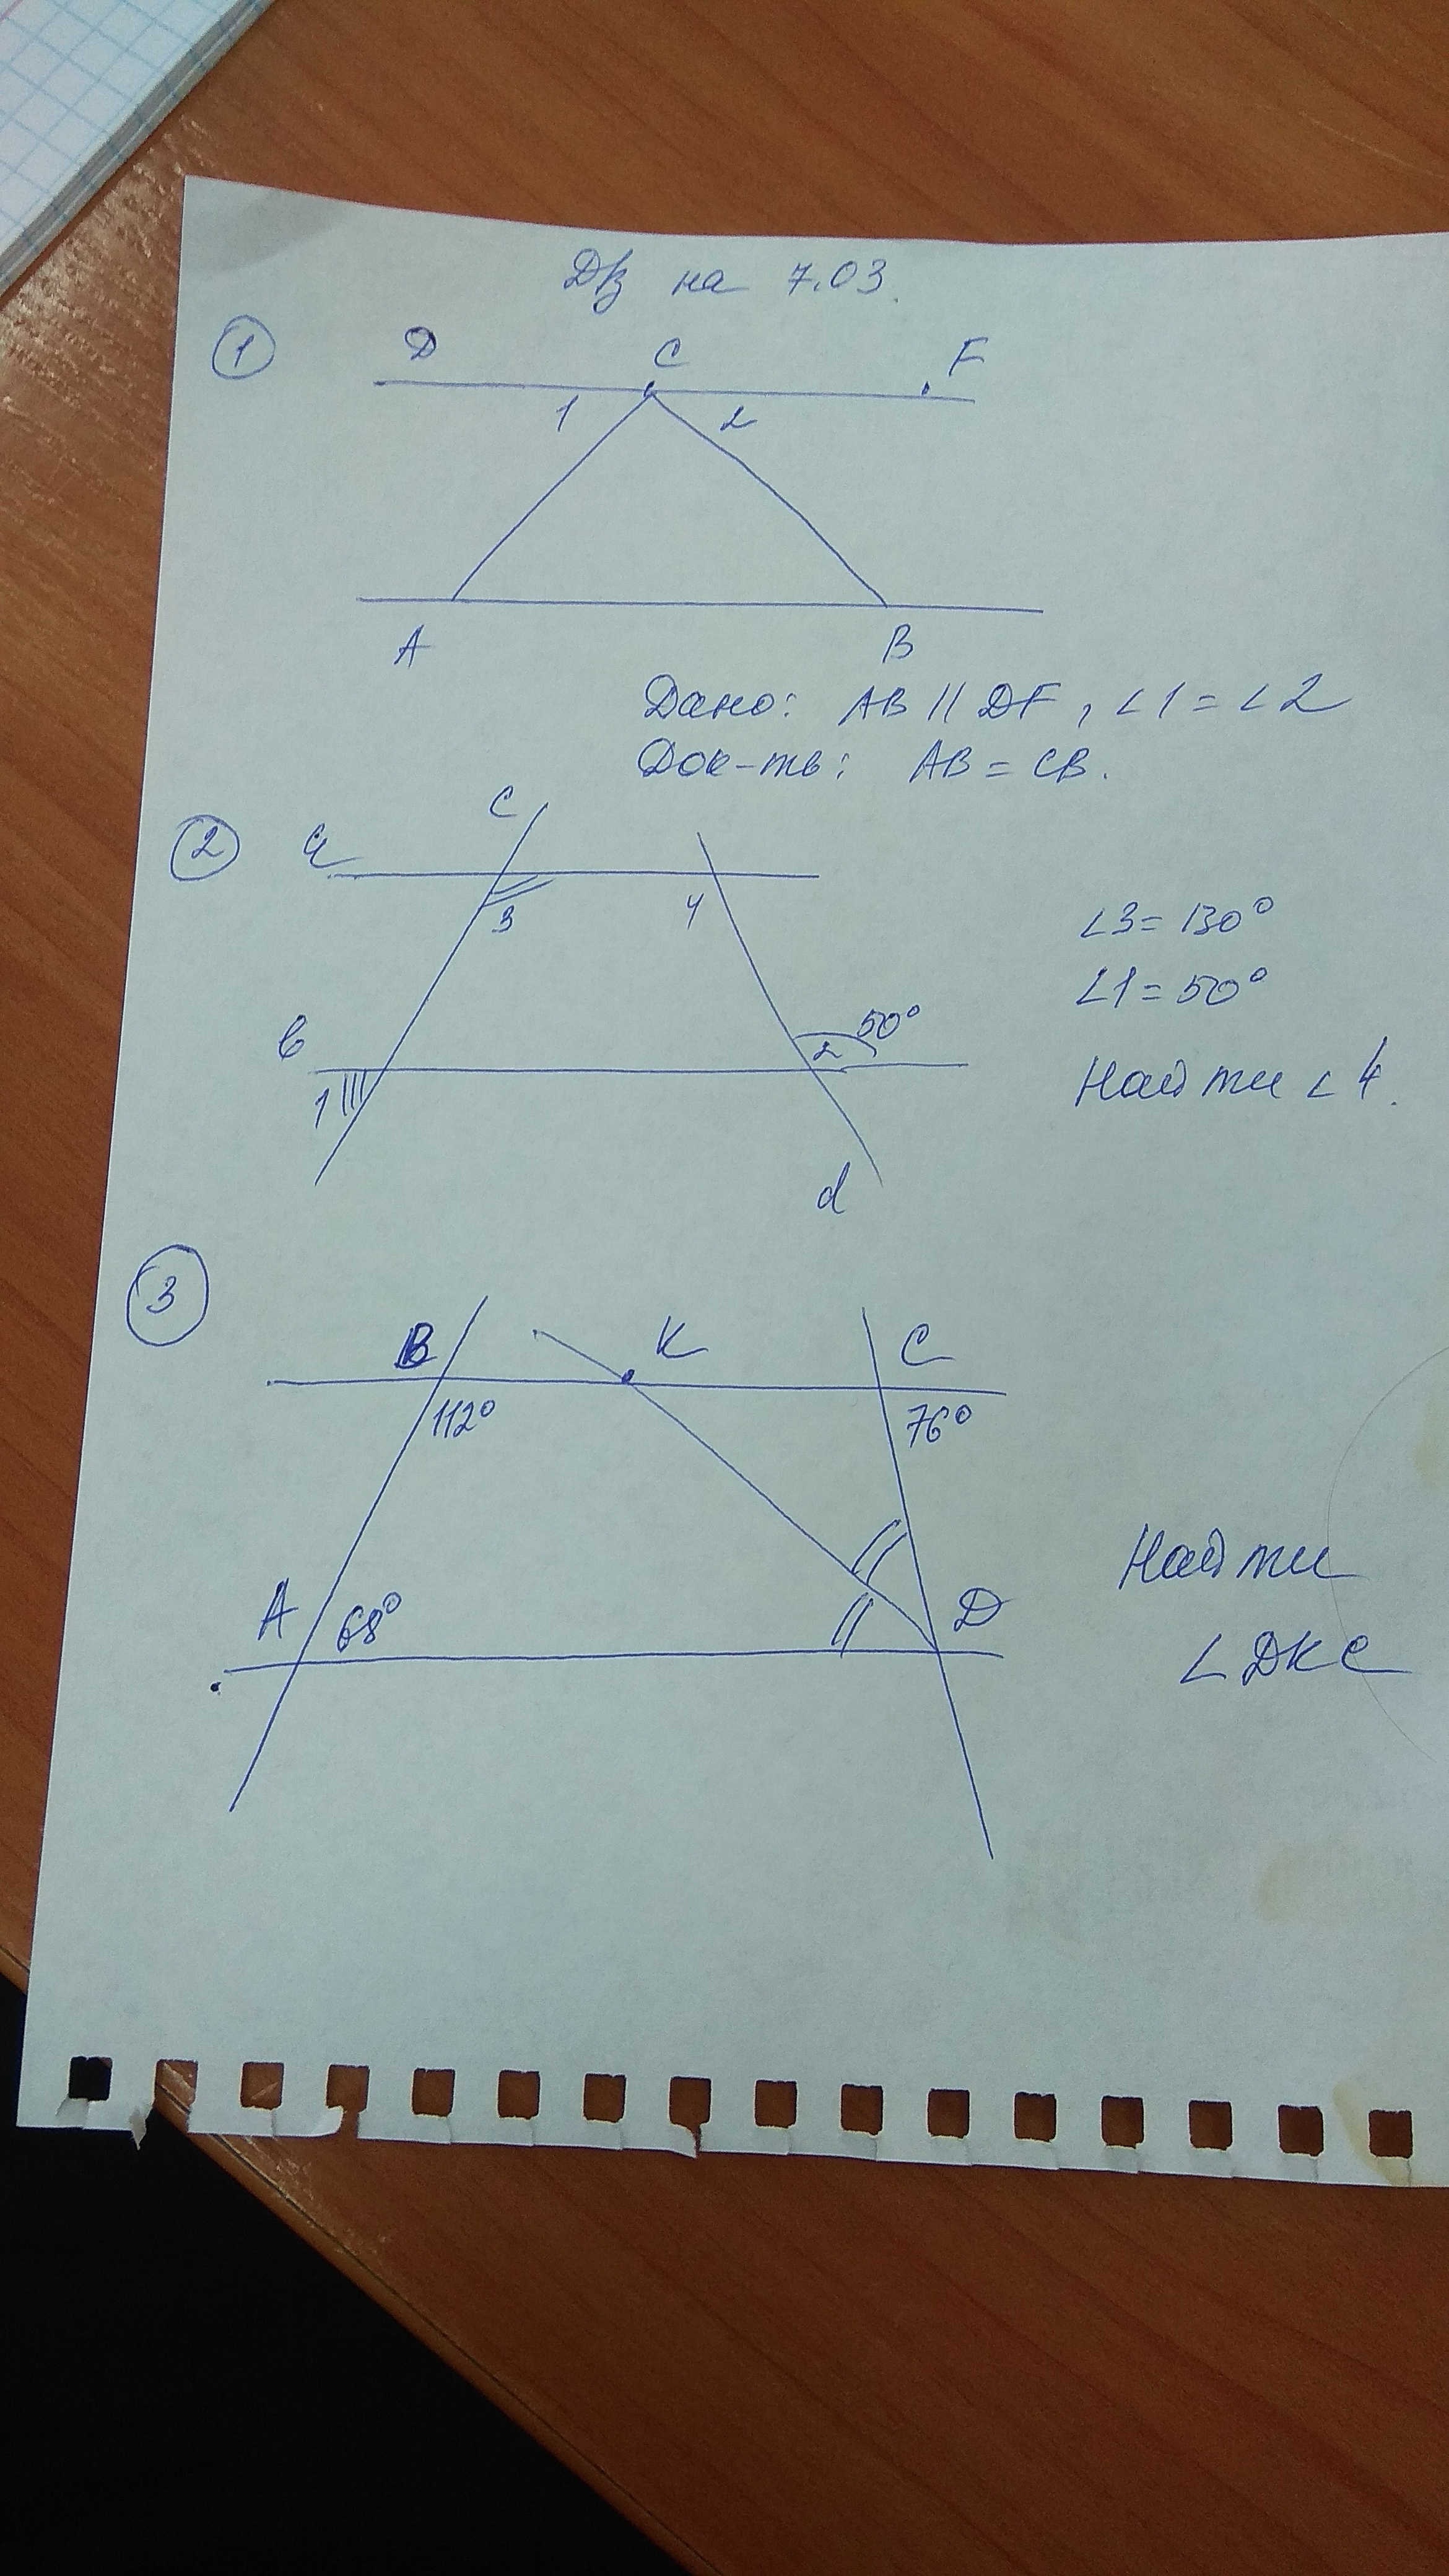 Дз на 7.03.
1
D C F
1 2
A B
Дано: AB || DF, ∠1 = ∠2
Док-ть: AB = CB.
2
a c
3 4
∠3 = 130°
∠1 = 50°
в 50°
1 2
Найти ∠4.
d
3
B K C
112° 76°
Найти
A 68° D
∠DKC